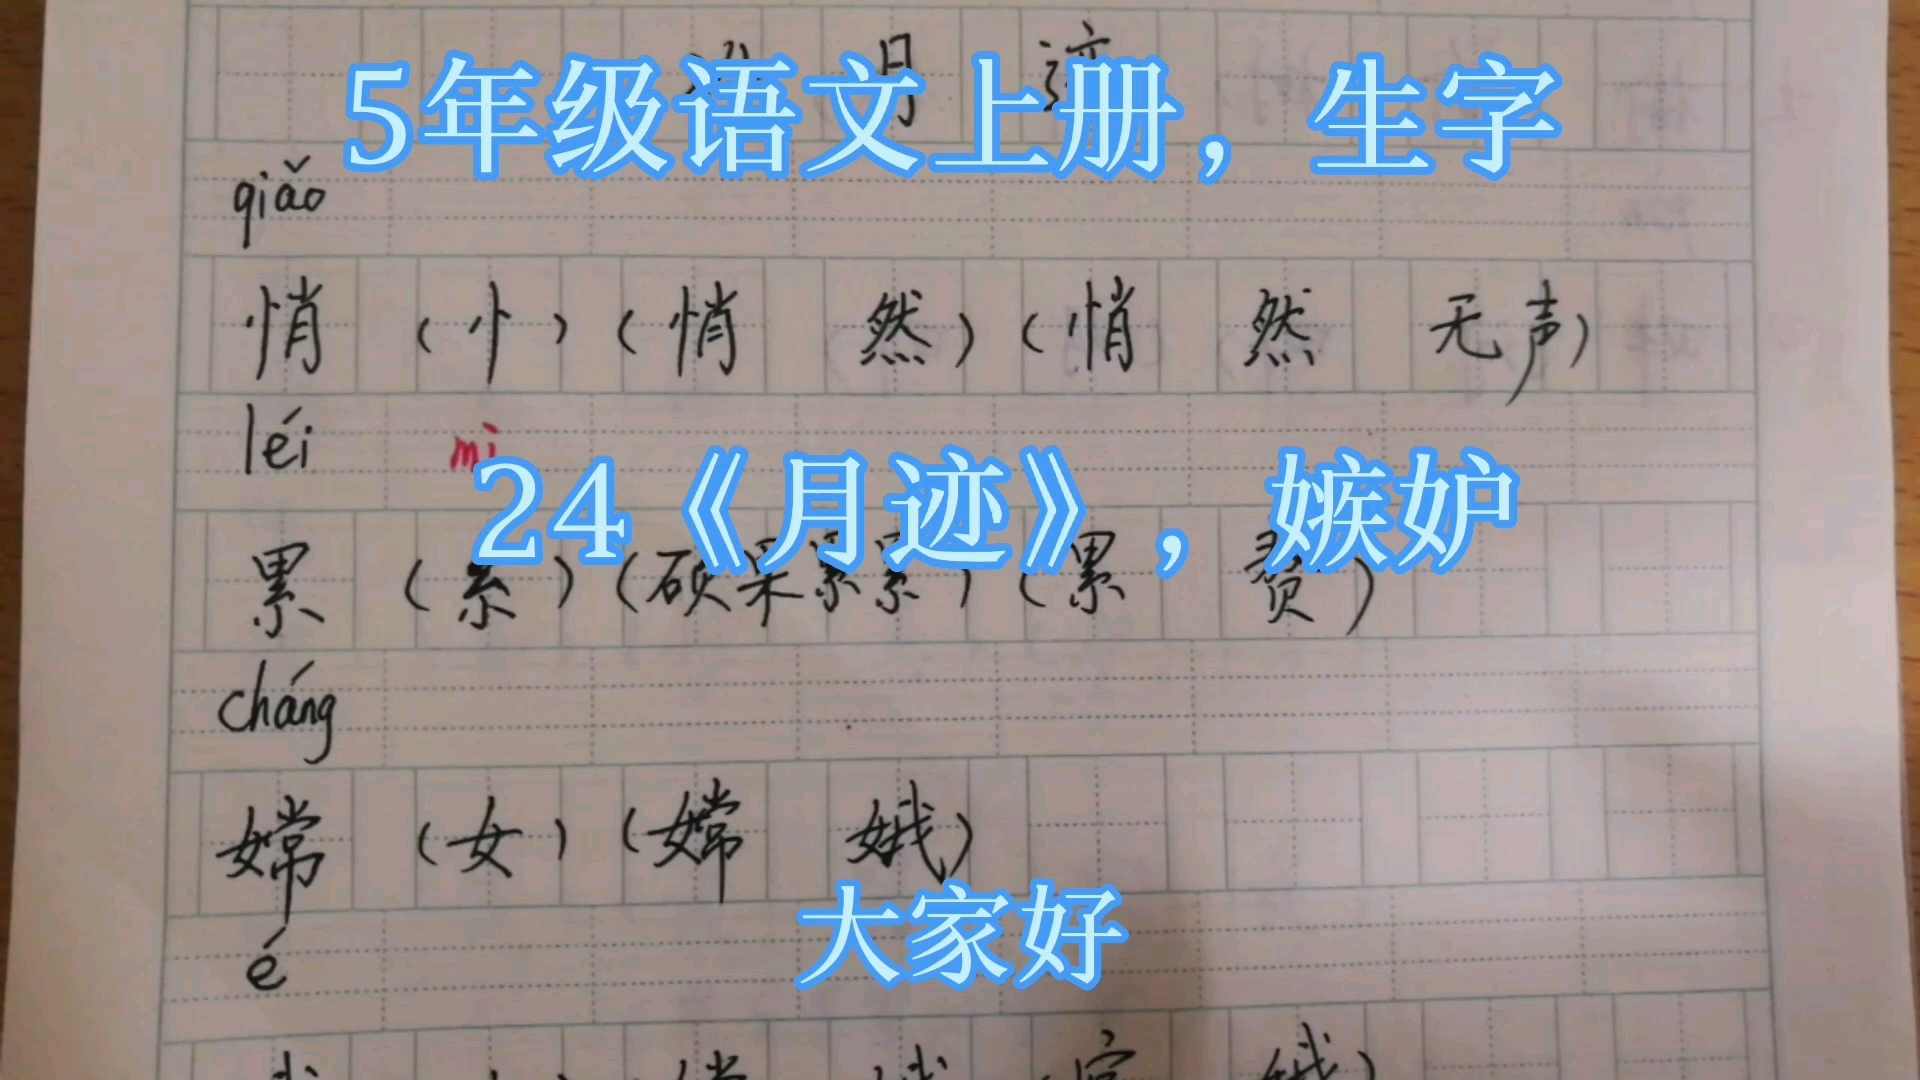 5年级语文上册，生字
月迹
qiǎo
悄（忄）（悄然）（悄然无声）
léi mì
24《月迹》，嫉妒
累（糸）（硕果累累）（累赘）
cháng
嫦（女）（嫦娥）
大家好
é